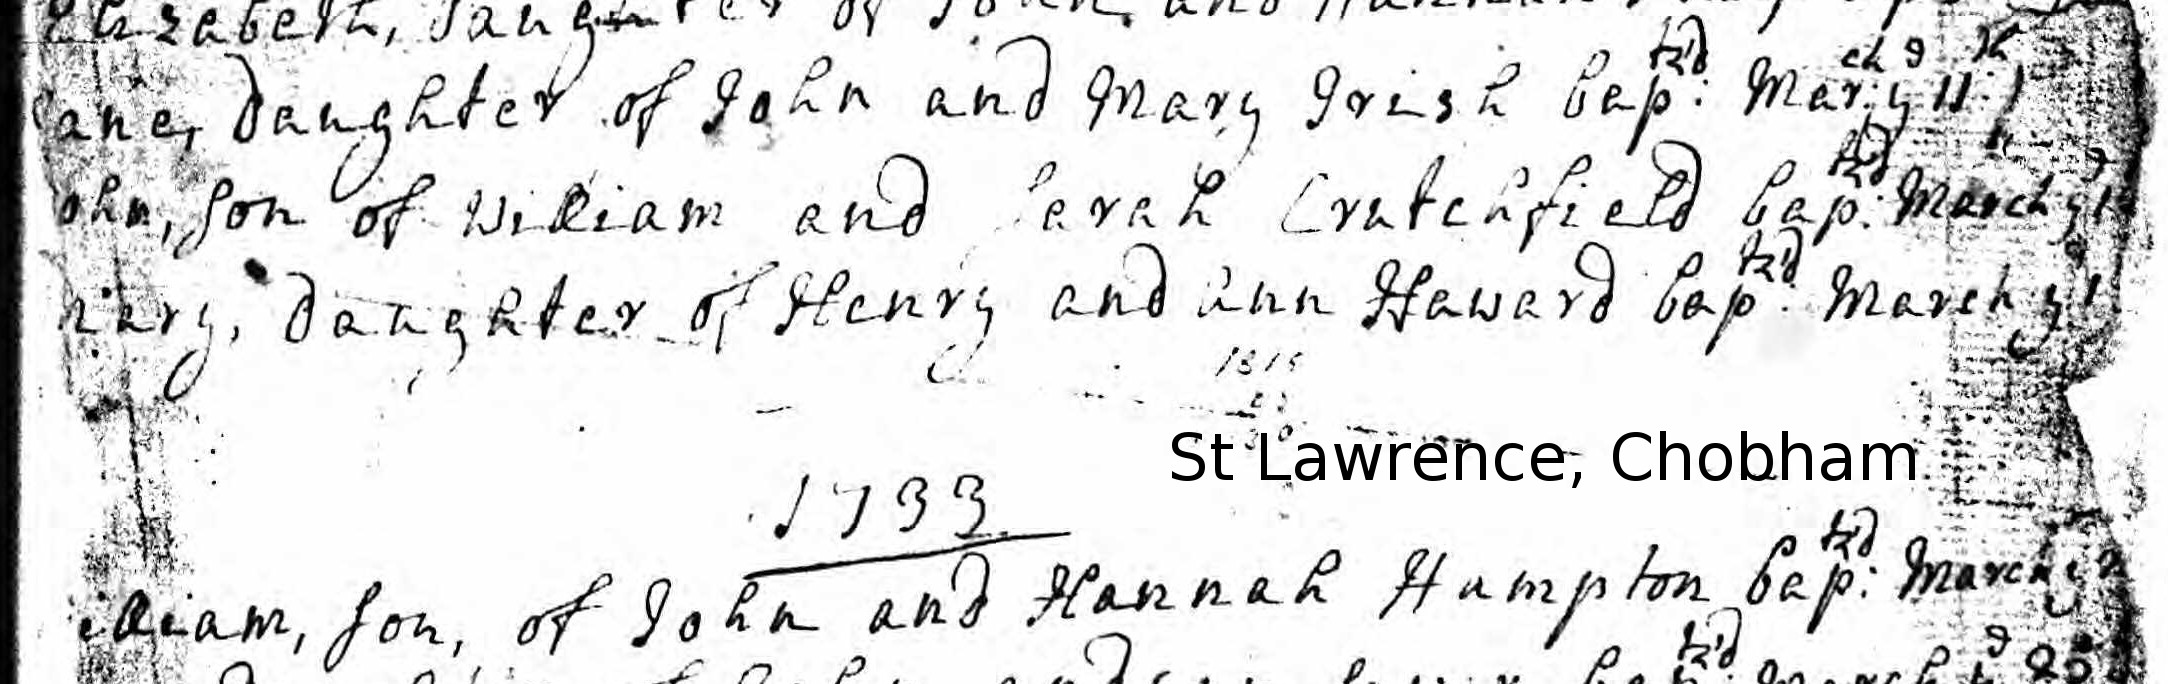 Elizabeth, Daughter of John and Hannah
ane, Daughter of John and Mary Irish baptz'd: March ye 11
ohn, Son of William and Sarah Crutchfield baptz'd: March ye
Mary, Daughter of Henry and Ann Haward baptz'd: March ye
1815
St Lawrence, Chobham
1733
illiam, Son, of John and Hannah Hampton baptz'd: March ye
baptz'd: March ye 25